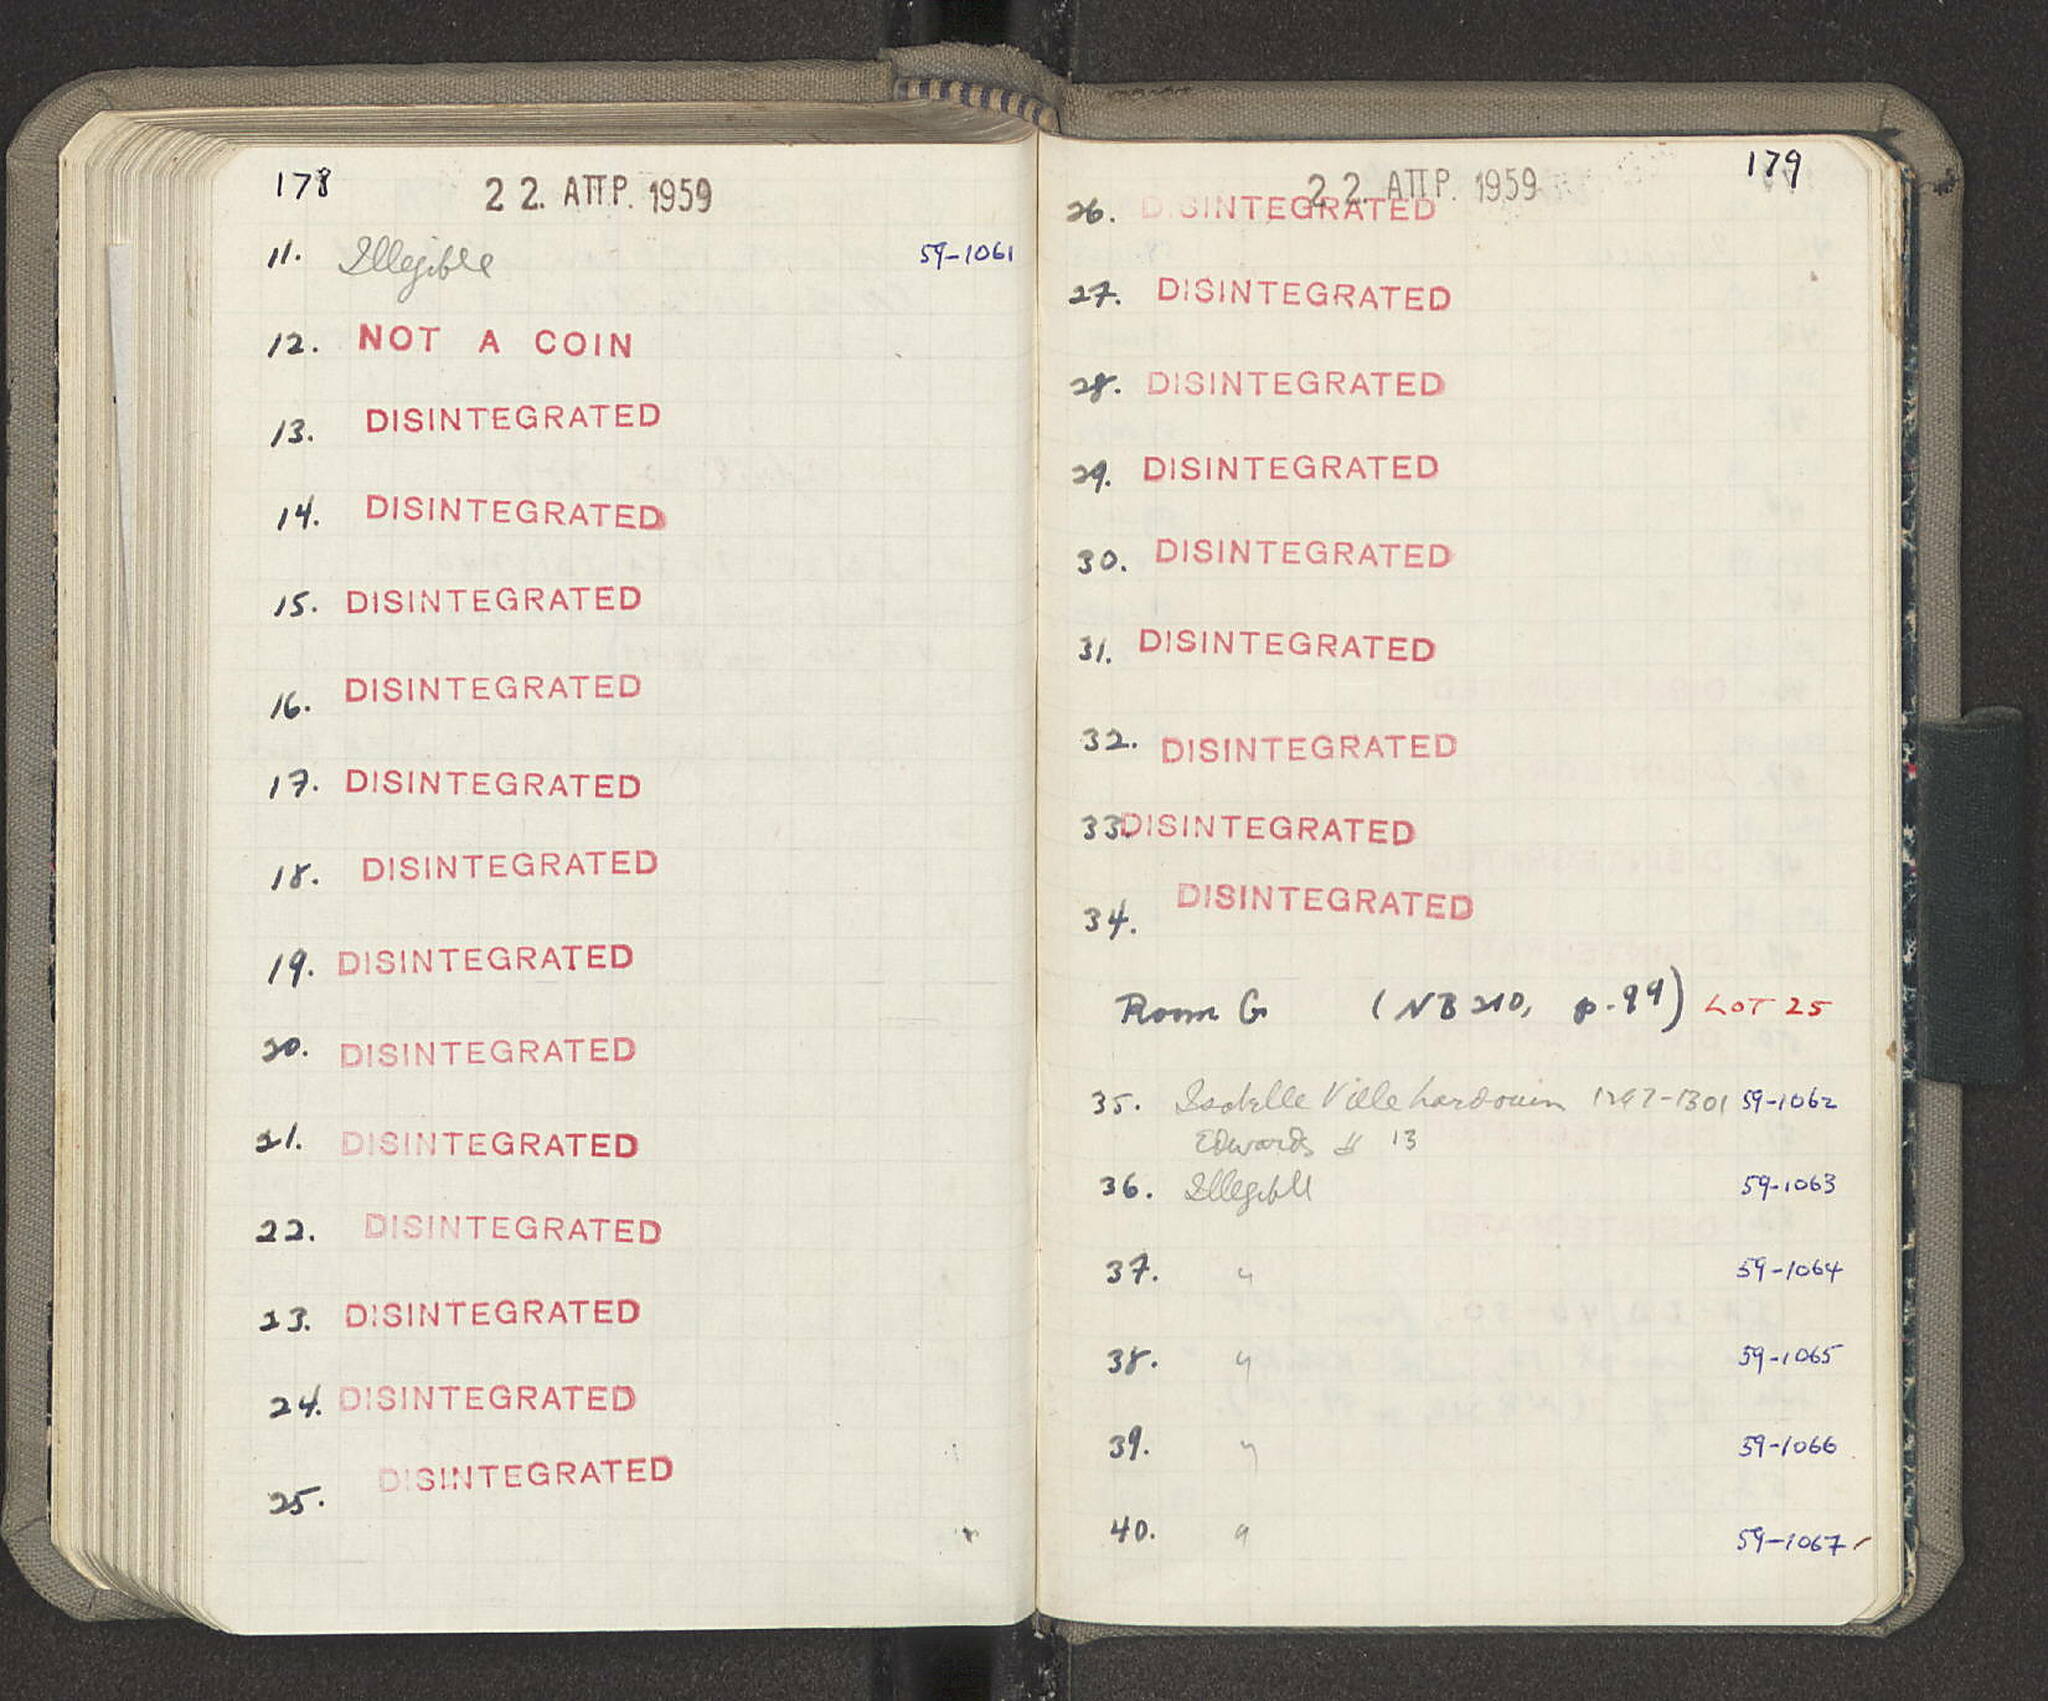 178
22. ΑΠΡ. 1959
11. Illegible 59-1061
12. NOT A COIN
13. DISINTEGRATED
14. DISINTEGRATED
15. DISINTEGRATED
16. DISINTEGRATED
17. DISINTEGRATED
18. DISINTEGRATED
19. DISINTEGRATED
20. DISINTEGRATED
21. DISINTEGRATED
22. DISINTEGRATED
23. DISINTEGRATED
24. DISINTEGRATED
25. DISINTEGRATED
179
22. ΑΠΡ. 1959
26. DISINTEGRATED
27. DISINTEGRATED
28. DISINTEGRATED
29. DISINTEGRATED
30. DISINTEGRATED
31. DISINTEGRATED
32. DISINTEGRATED
33. DISINTEGRATED
34. DISINTEGRATED
Room G (NB 210, p. 99) LOT 25
35. Isabelle Villehardouin 1297-1301 59-1062
Edwards # 13
36. Illegible 59-1063
37. " 59-1064
38. " 59-1065
39. " 59-1066
40. " 59-1067